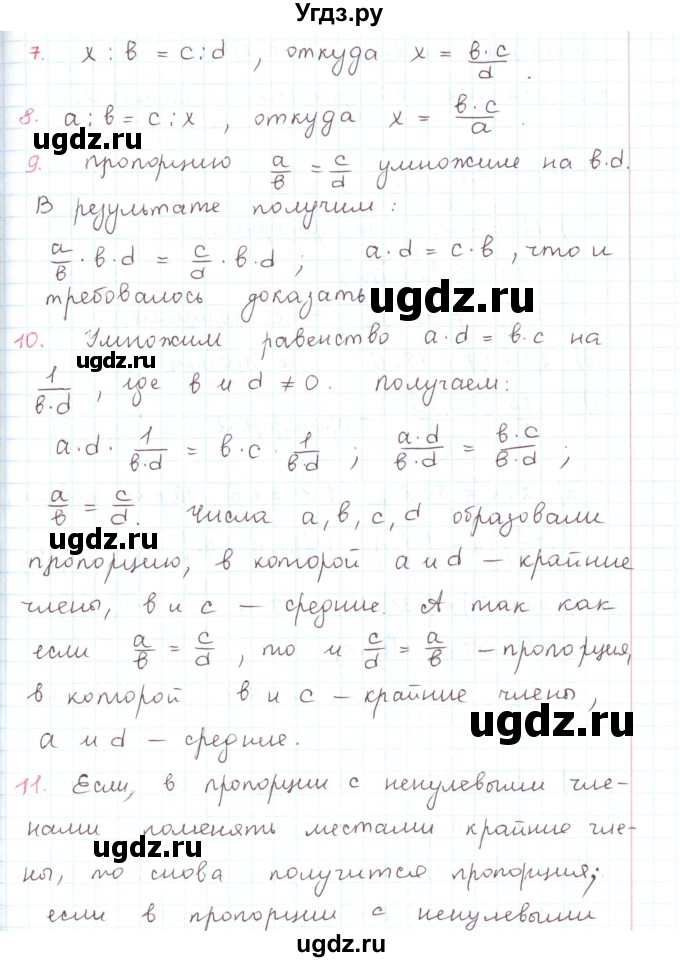 Угдз.ру
7. x : b = c : d , откуда x = b·c/d .
8. a : b = c : x , откуда x = b·c/a .
ugdz.ru
9. пропорцию a/b = c/d умножиле на b·d.
В результате получим :
a/b · b · d = c/d · b · d ; a · d = c · b , что и
требовалось доказать
ugdz.ru
10. Умножим равенство a·d = b·c на
ugdz.ru
1/b·d , где b и d ≠ 0 . получаем :
a · d · 1/b·d = b · c · 1/b·d ; a·d/b·d = b·c/b·d ;
a/b = c/d . Числа a, b, c, d образовали
ugdz.ru
пропорцию, в которой a и d – крайние
члены, b и c – средние. А так как
если a/b = c/d , то и c/d = a/b – пропорция,
в которой b и c – крайние члены,
ugdz.ru
a и d – средние.
11. Если, в пропорции с ненулевыми чле-
нами поменять местами крайние чле-
ugdz.ru
ны, то снова получится пропорция;
если в пропорции с ненулевыми
ugdz.ru